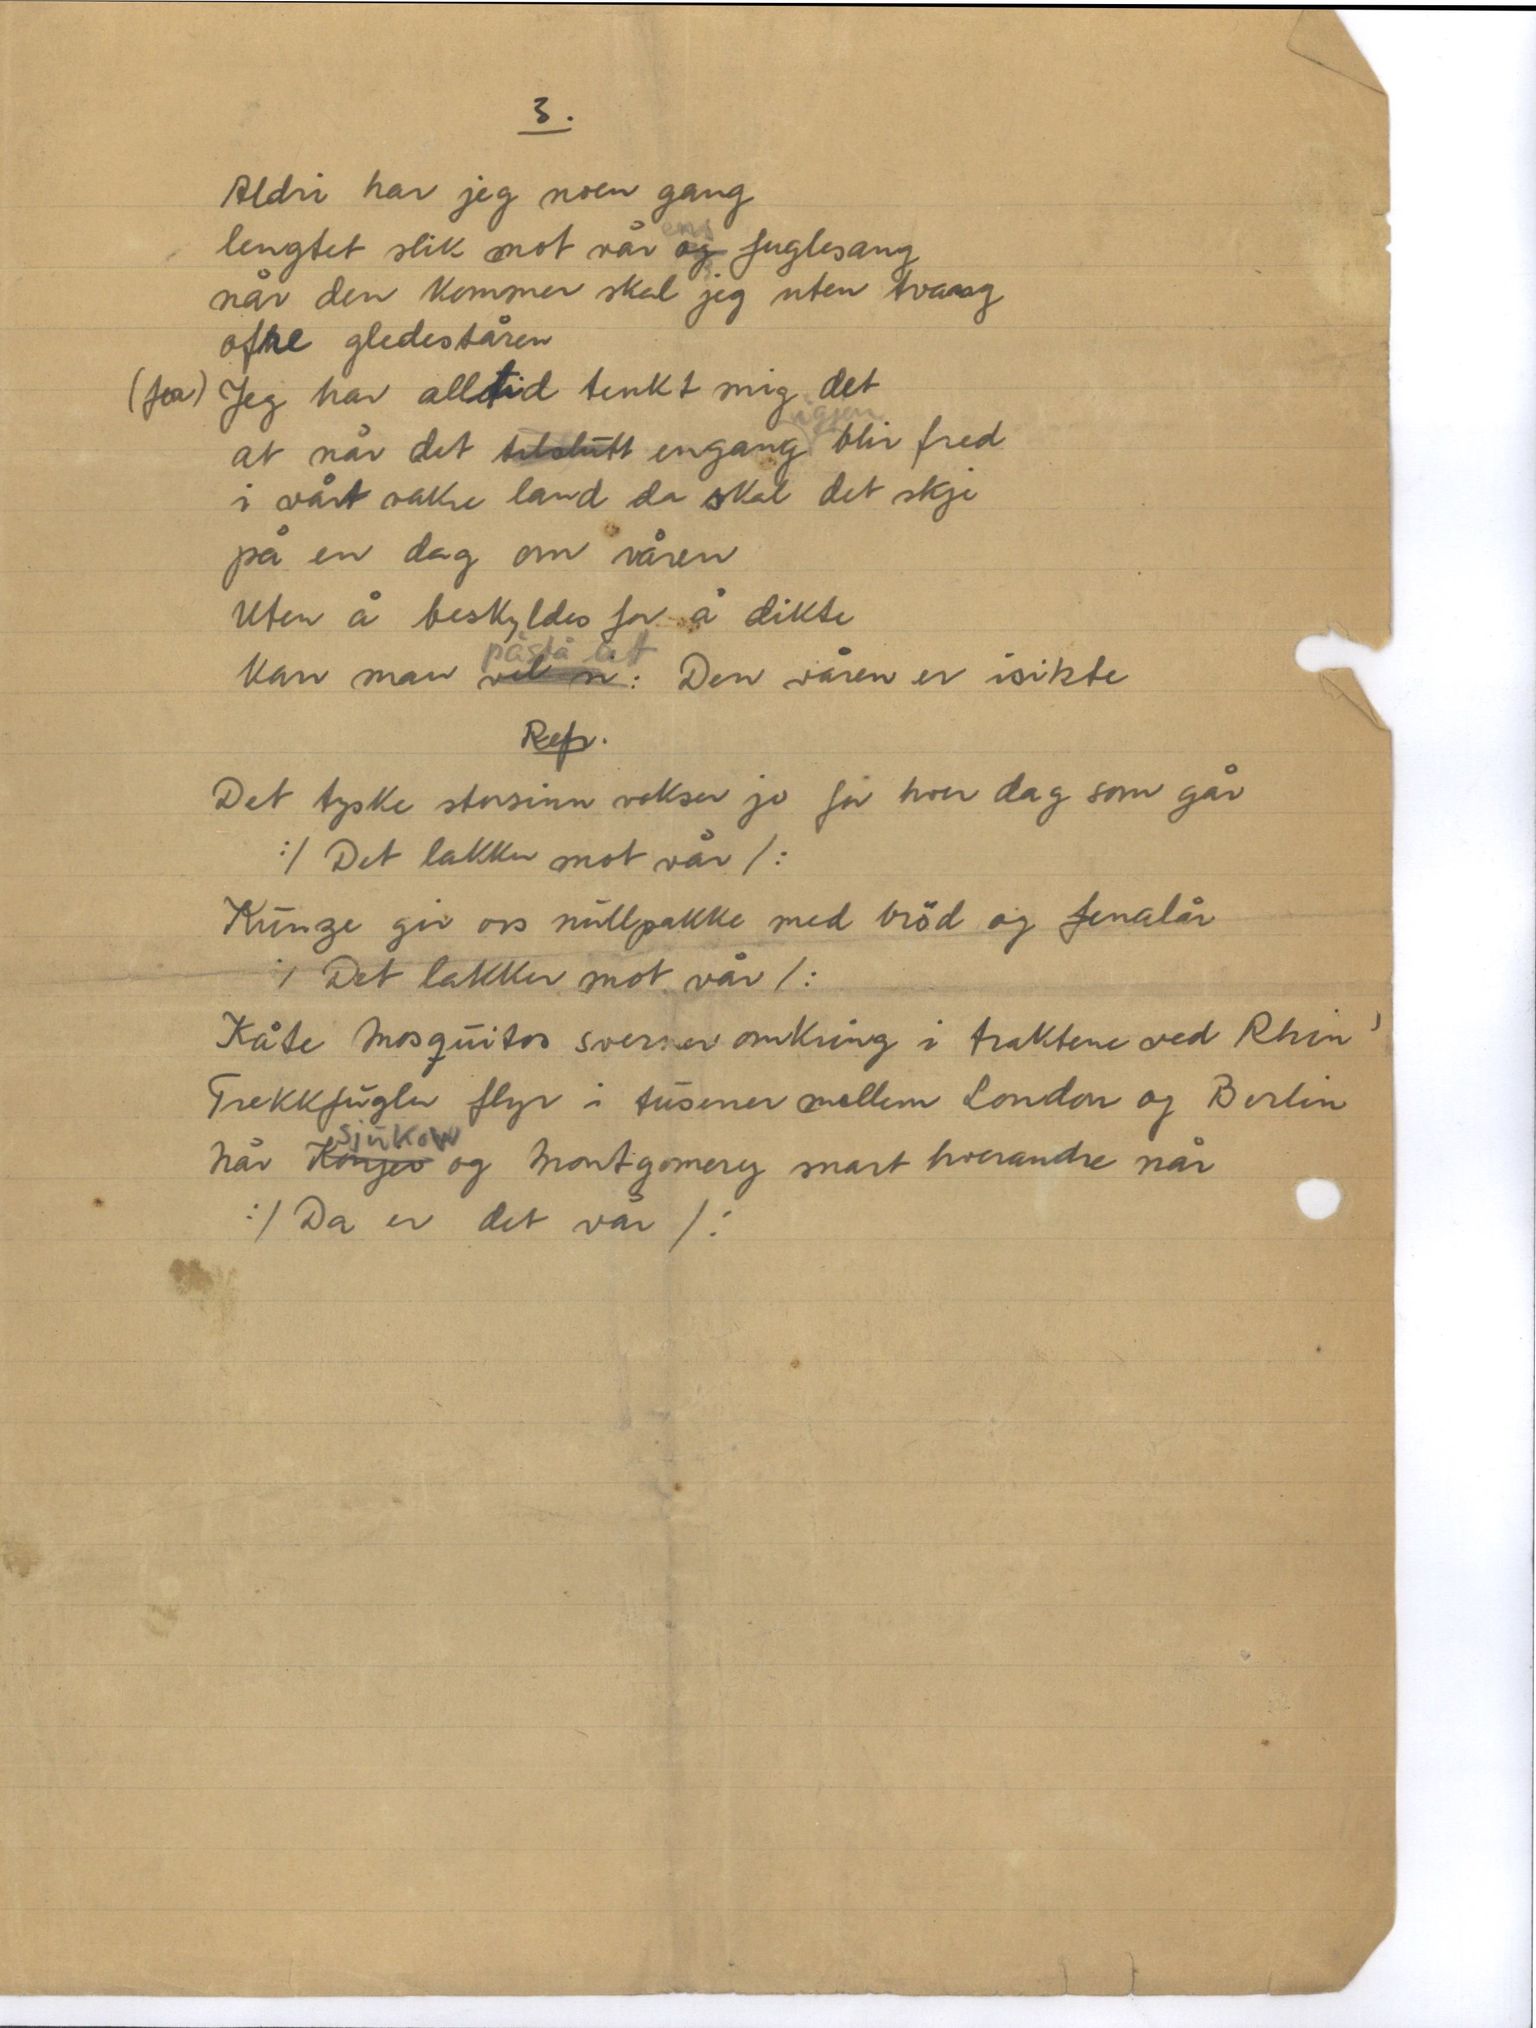 3.
Aldri har jeg noen gang
lengtet slik mot vår og ens fuglesang
når den kommer skal jeg uten tvang
ofre gledeståren
(for) Jeg har alltid tenkt mig det
at når det tilslutt engang igjen blir fred
i vårt vakre land da skal det skje
på en dag om våren
Uten å beskyldes for å dikte
kan man vel si: påstå at Den våren er isikte
Refr.
Det tyske storsinn vokser jo for hver dag som går
:/ Det lakker mot vår /:
Kunze gir oss nullpakke med bröd og fenalår
:/ Det lakker mot vår /:
Kåte Mosquitos svermer omkring i traktene ved Rhin
Trekkfugler flyr i tusener mellem London og Berlin
Når Konjev Sjukow og Montgomery snart hverandre når
:/ Da er det vår /: